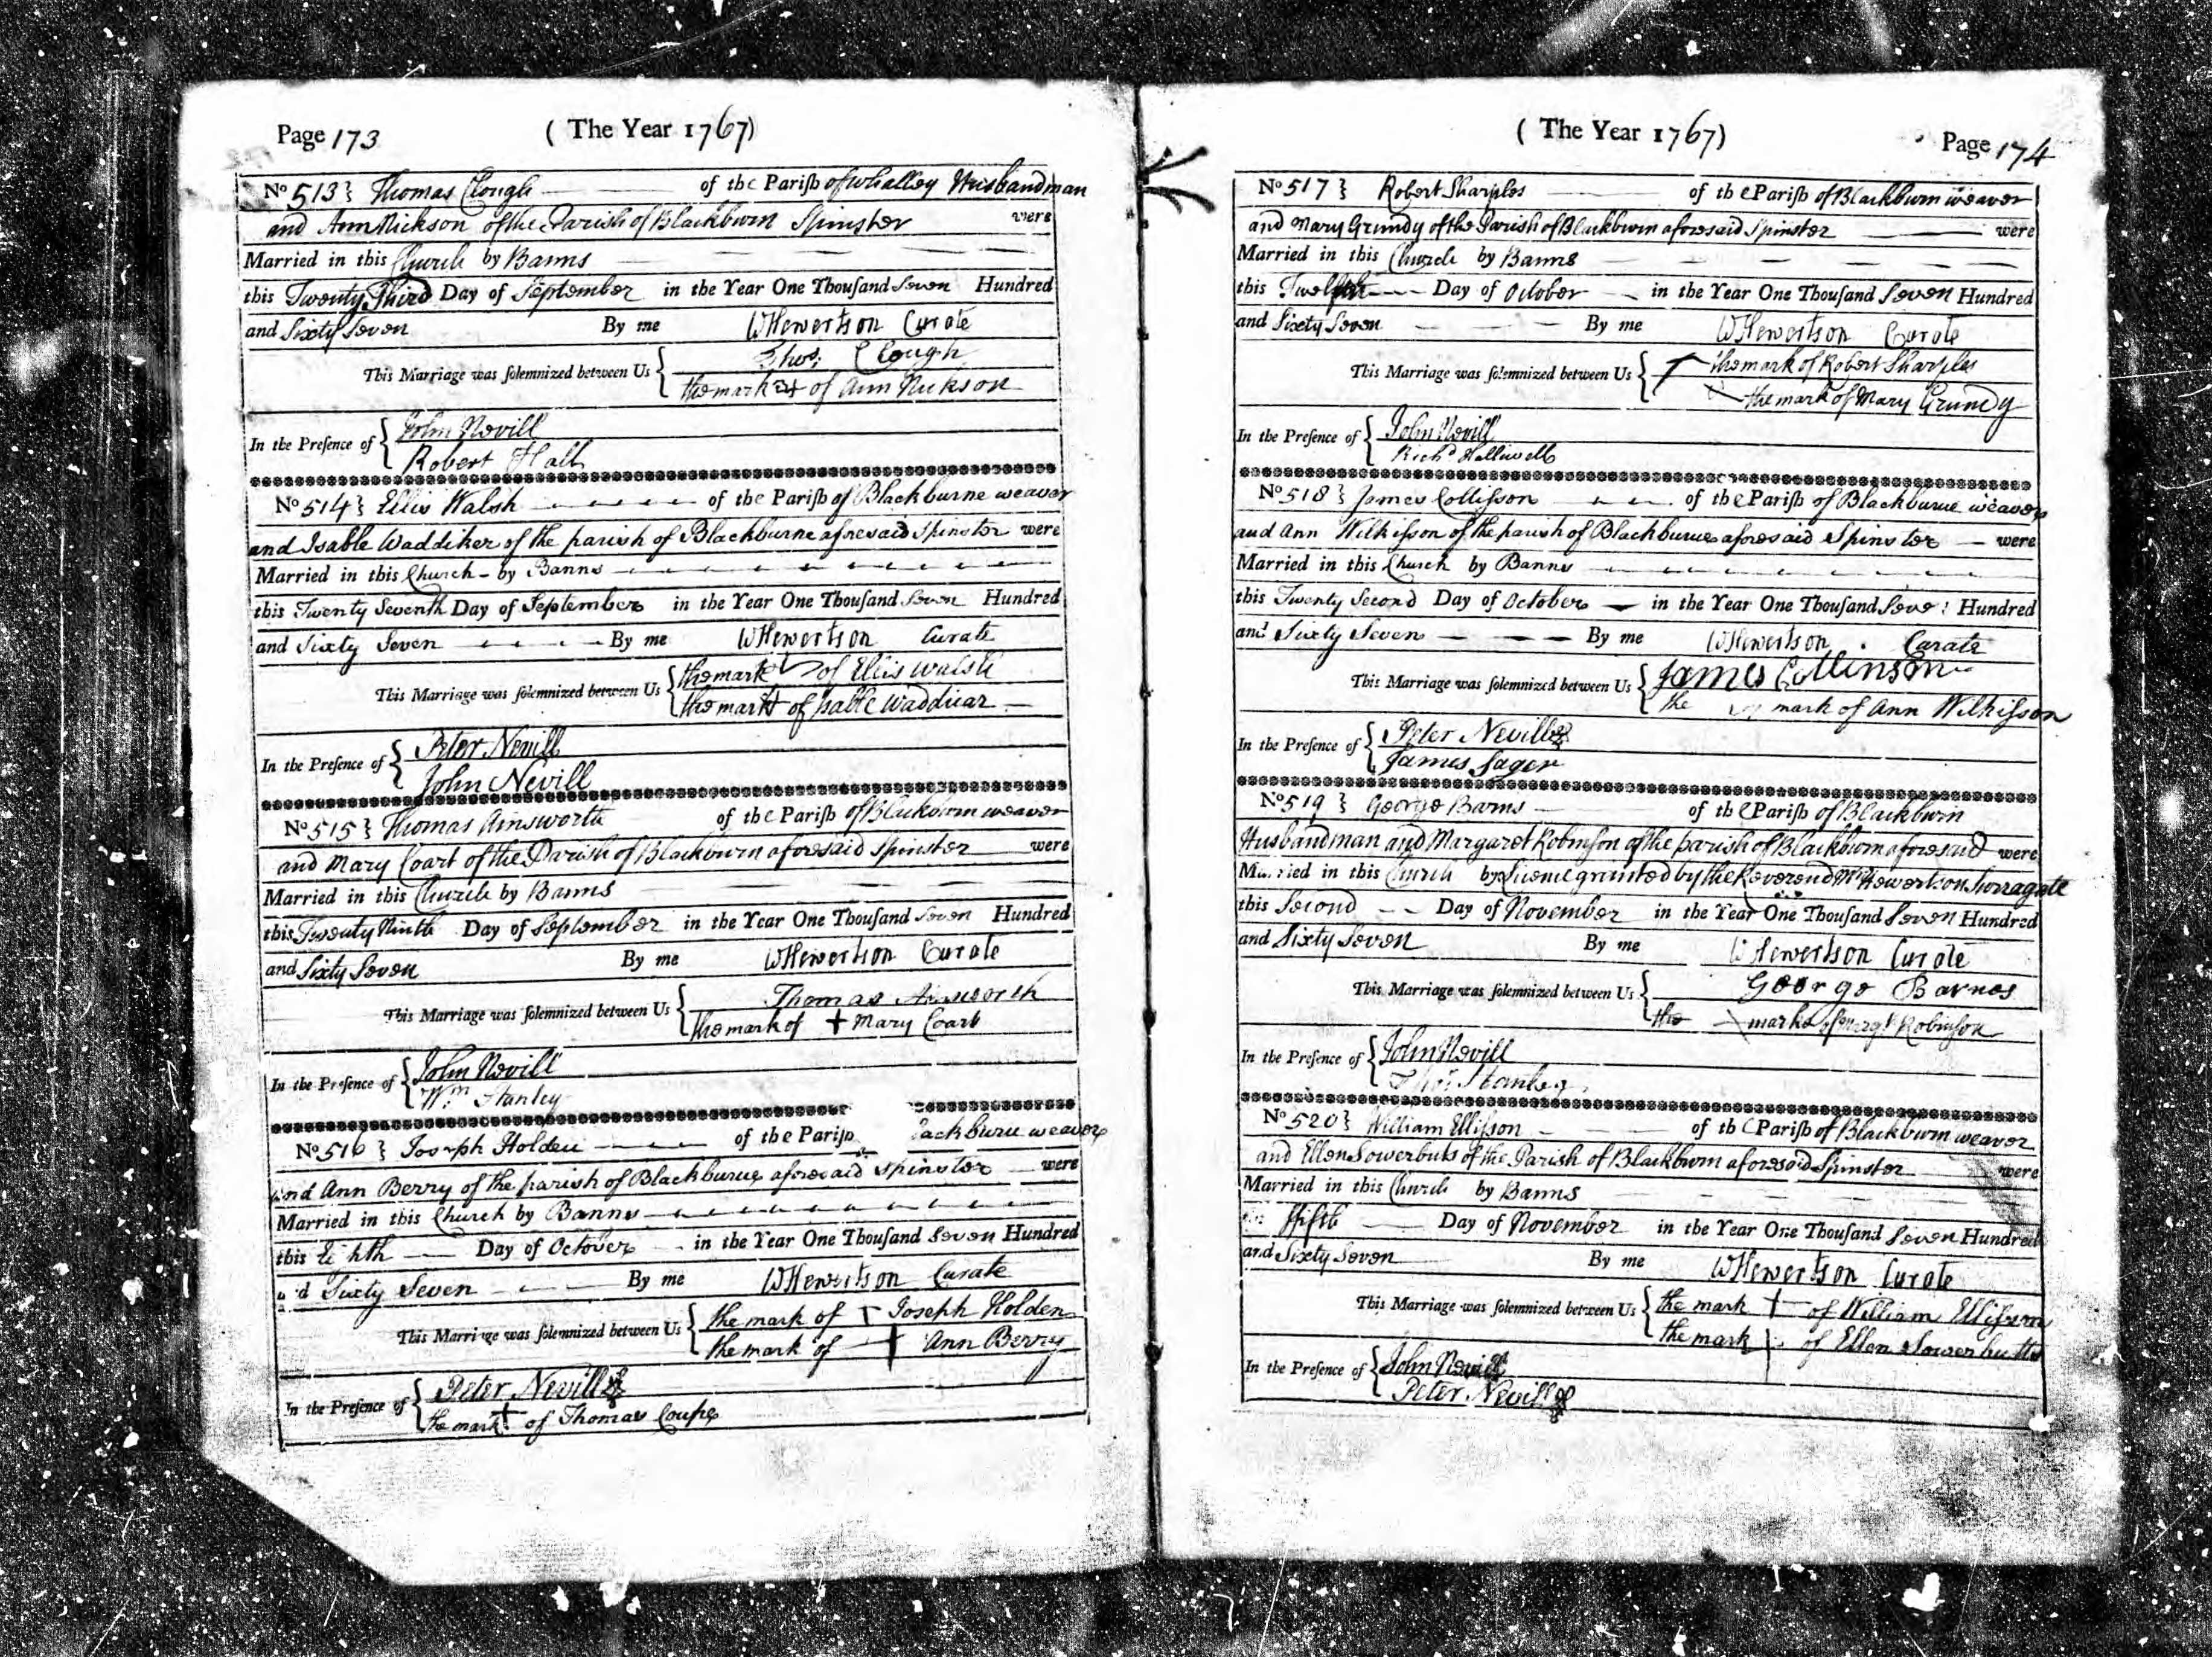 Page 173
( The Year 1767)
No 513 } Thomas Clough of the Pariſh of Whalley Husbandman
and Ann Nickson of the Parish of Blackburn Spinster were
Married in this Church by Banns
this Twenty Third Day of September in the Year One Thouſand Seven Hundred
and Sixty Seven By me WHewertson Curate
This Marriage was ſolemnized between Us { Thos: Clough
the mark of Ann Nickson
In the Preſence of { John Nevill
Robert Hall
No 514 } Ellis Walsh of the Pariſh of Blackburne weaver
and Isable Waddiker of the parish of Blackburne aforesaid Spinster were
Married in this Church by Banns
this Twenty Seventh Day of September in the Year One Thouſand Seven Hundred
and Sixty Seven By me WHewertson Curate
This Marriage was ſolemnized between Us { the mark of Ellis Walsh
the mark of Isable Waddicar
In the Preſence of { Peter Nevill
John Nevill
No 515 } Thomas Ainsworth of the Pariſh of Blackburn weaver
and Mary Coart of the Parish of Blackburn aforesaid Spinster were
Married in this Church by Banns
this Twenty Ninth Day of September in the Year One Thouſand Seven Hundred
and Sixty Seven By me WHewertson Curate
This Marriage was ſolemnized between Us { Thomas Ainsworth
the mark of + Mary Coart
In the Preſence of { John Nevill
Wm Stanley
No 516 } Joseph Holden of the Pariſh lackburne weaver
and Ann Berry of the parish of Blackburne aforesaid Spinster were
Married in this Church by Banns
this Eighth Day of October in the Year One Thouſand Seven Hundred
and Sixty Seven By me WHewertson Curate
This Marriage was ſolemnized between Us { the mark of Joseph Holden
the mark of + Ann Berry
In the Preſence of { Peter Nevill
the mark + of Thomas Coupe
( The Year 1767)
Page 174
No 517 } Robert Sharples of the Pariſh of Blackburn weaver
and Mary Grundy of the Parish of Blackburn aforesaid Spinster were
Married in this Church by Banns
this Twelfth Day of October in the Year One Thouſand Seven Hundred
and Sixty Seven By me WHewertson Curate
This Marriage was ſolemnized between Us { the mark of Robert Sharples
the mark of Mary Grundy
In the Preſence of { John Nevill
Richd Halliwell
No 518 } James Colliſson of the Pariſh of Blackburne weaver
and Ann Wilkiſson of the parish of Blackburne aforesaid Spinster were
Married in this Church by Banns
this Twenty Second Day of October in the Year One Thouſand Seve: Hundred
and Sixty Seven By me WHewertson Curate
This Marriage was ſolemnized between Us { James Collinson
the mark of Ann Wilkiſson
In the Preſence of { Peter Nevill
James Sager
No 519 } George Barns of the Pariſh of Blackburn
Husbandman and Margaret Robinſon of the parish of Blackburn aforesaid were
Married in this Church by Licence granted by the Reverend Mr Hewertson Surragate
this Second Day of November in the Year One Thouſand Seven Hundred
and Sixty Seven By me WHewertson Curate
This Marriage was ſolemnized between Us { George Barnes
the mark of Margt Robinſon
In the Preſence of { John Nevill
Thos Stanley
No 520 } William Elliſson of the Pariſh of Blackburn weaver
and Ellen Sowerbuts of the Parish of Blackburn aforesaid Spinster were
Married in this Church by Banns
Fifth Day of November in the Year One Thouſand Seven Hundred
and Sixty Seven By me WHewertson Curate
This Marriage was ſolemnized between Us { the mark + of William Elliſson
the mark of Ellen Sowerbutts
In the Preſence of { John Nevill
Peter Nevill